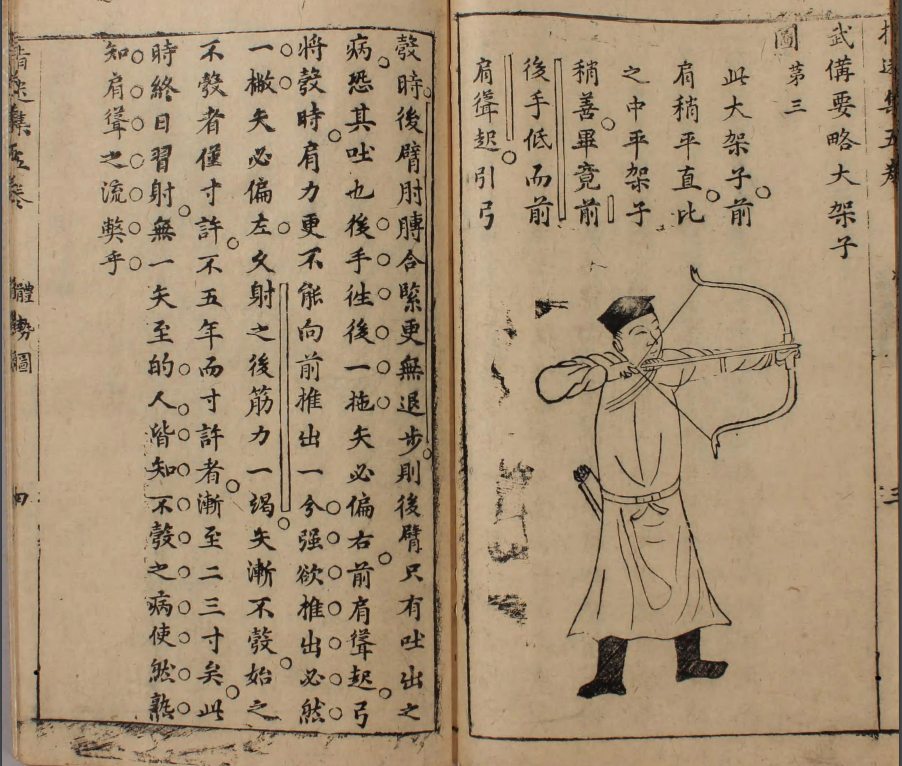 武備要略大架子
圖第三
此大架子前
肩稍平直比
之中平架子
稍善畢竟前
後手低而前
肩聳起引弓
彀時後臂肘膊合緊更無退步則後臂只有吐出之
病恐其吐也後手徃後一拖矢必偏右前肩聳起弓
將彀時肩力更不能向前推出一分强欲推出必然
一撇矢必偏左久射之後筋力一竭矢漸不彀始之
不彀者僅寸許不五年而寸許者漸至二三寸矣此
時終日習射無一矢至的人皆知不彀之病使然熟
知肩聳之流弊乎
體勢圖